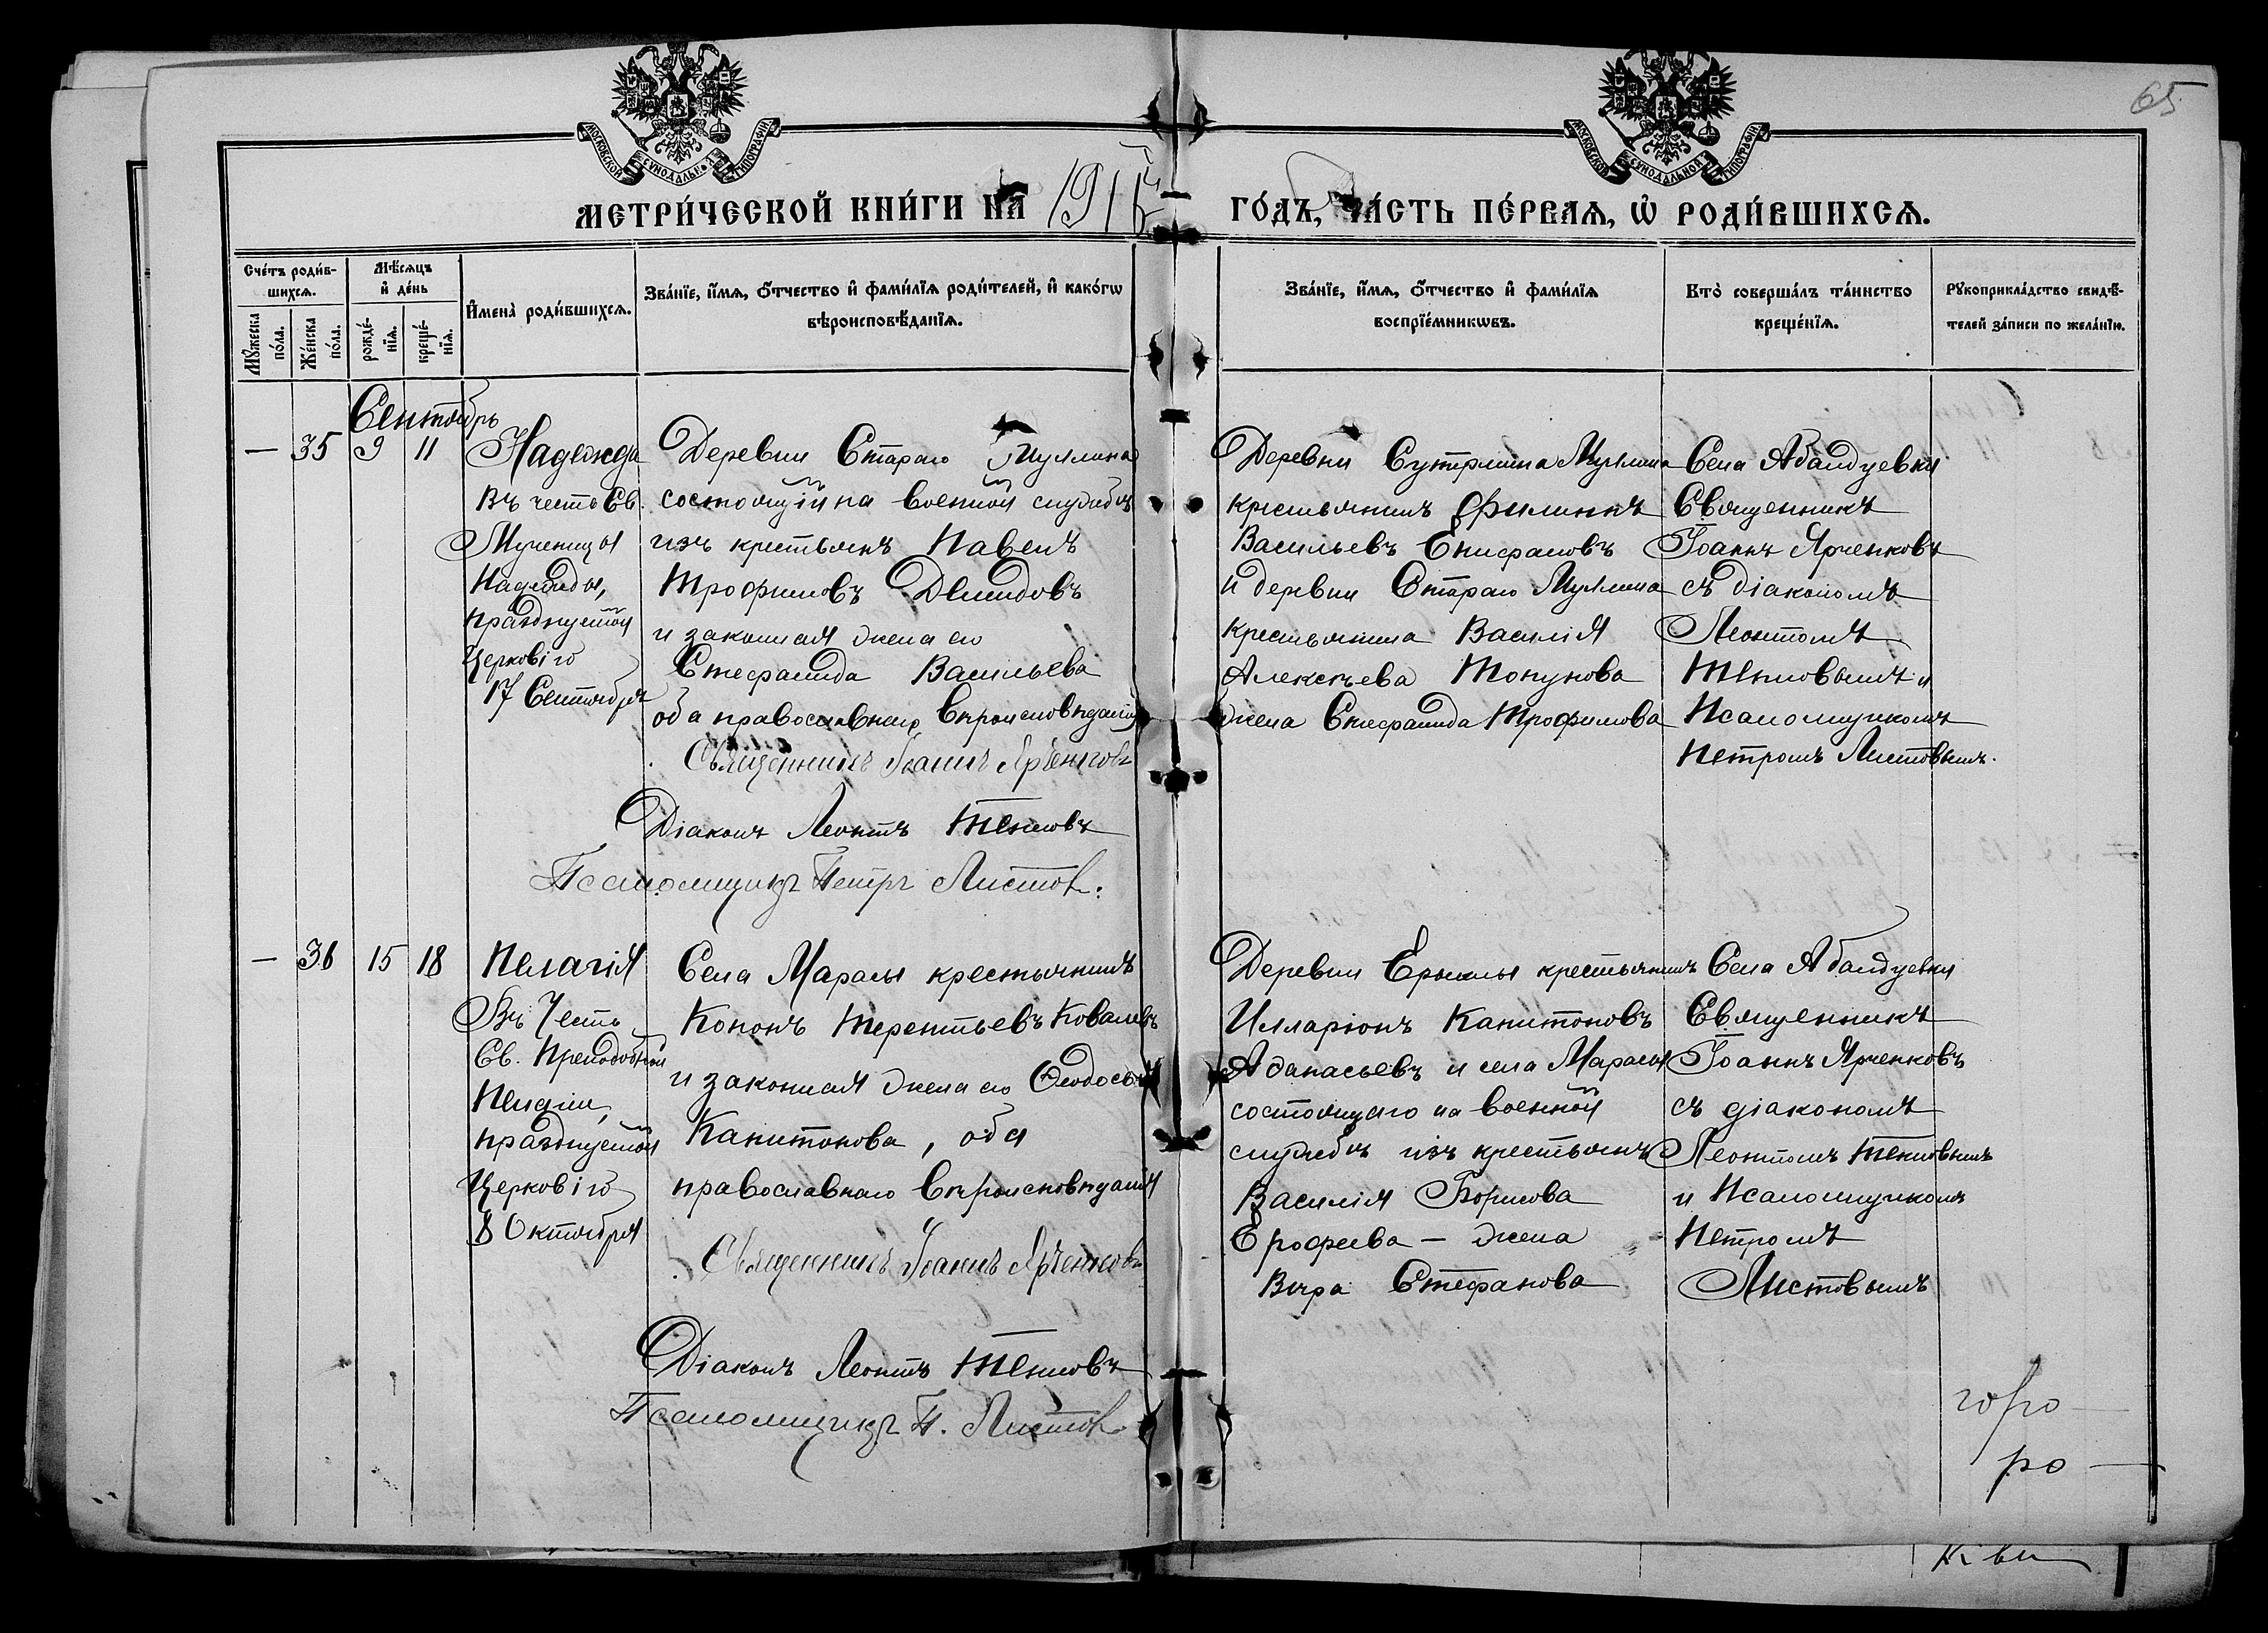 65
МОСКОВСКОЙ СѴНОДАЛЬНОЙ ТИПОГРАФІИ
МОСКОВСКОЙ СѴНОДАЛЬНОЙ ТИПОГРАФІИ
МЕТРИ́ЧЕСКОЙ КНИ́ГИ НА
ГО́ДЪ, ЧА́СТЬ ПЕ́РВАѦ, Ѡ҆ РОДИ́ВШИХСѦ.
Счéтъ роди́в-
шихсѧ.
Мѣ́сѧцъ
и҆ де́нь
И҆мена̀ роди́вшихсѧ.
Зва́нїе, и҆́мѧ, ѻ҆́тчество и҆ фами́лїѧ роди́телей, и҆ како́гѡ
вѣроисповѣ́данїѧ.
Зва́нїе, и҆́мѧ, ѻ҆́тчество и҆ фами́лїѧ
воспрїе́мникѡвъ.
Кто̀ соверша́лъ та́инство
креще́нїѧ.
Рꙋкоприкла́дство свидѣ́-
телей за́писи по жела́нїю.
Мꙋ́жеска по́ла.
Же́нска по́ла.
рожде́-нїѧ.
креще́-нїѧ.
Сентябрь
— 35 9 11
Надежда
Въ честь Св.
Мученицы
Надежды,
празднуемой
Церковію
17 Сентября
Деревни Стараго Муллина
состоящій на военной службѣ
изъ крестьянъ Павелъ
Трофимовъ Демидовъ
и законная жена его
Стефанида Васильева
оба православнаго вѣроисповѣданія
Священникъ Іоаннъ Ярченковъ
Діаконъ Леонтъ Тепловъ
Псаломщикъ Петръ Листовъ.
Деревни Муллина
крестьянинъ Филиппъ
Васильевъ Епифановъ
и деревни Стараго Муллина
крестьянина Василія
Алексѣева Топунова
жена Стефанида Трофимова
Села Абалдуевки
Священникъ
Іоаннъ Ярченковъ
съ діакономъ
Леонтомъ
Тепловымъ и
Псаломщикомъ
Петромъ Листовымъ.
— 36 15 18
Пелагія
Въ Честь
Св. Преподобной
Пелагіи,
празднуемой
Церковію
8 Октября
Села Марасы крестьянинъ
Кононъ Терентьевъ Ковалевъ
и законная жена его Ѳеодосія
Капитонова, оба
православнаго вѣроисповѣданія
Священникъ Іоаннъ Ярченковъ
Діаконъ Леонтъ Тепловъ
Псаломщикъ П. Листовъ
Деревни Ерыклы крестьянинъ
Илларіонъ Капитоновъ
Аѳанасьевъ и села Марасы
состоящаго на военной
службѣ изъ крестьянъ
Василія Борисова
Ерофеева — жена
Вѣра Стефанова
Села Абалдуевки
Священникъ
Іоаннъ Ярченковъ
съ діакономъ
Леонтомъ Тепловымъ
и Псаломщикомъ
Петромъ
Листовымъ
ро